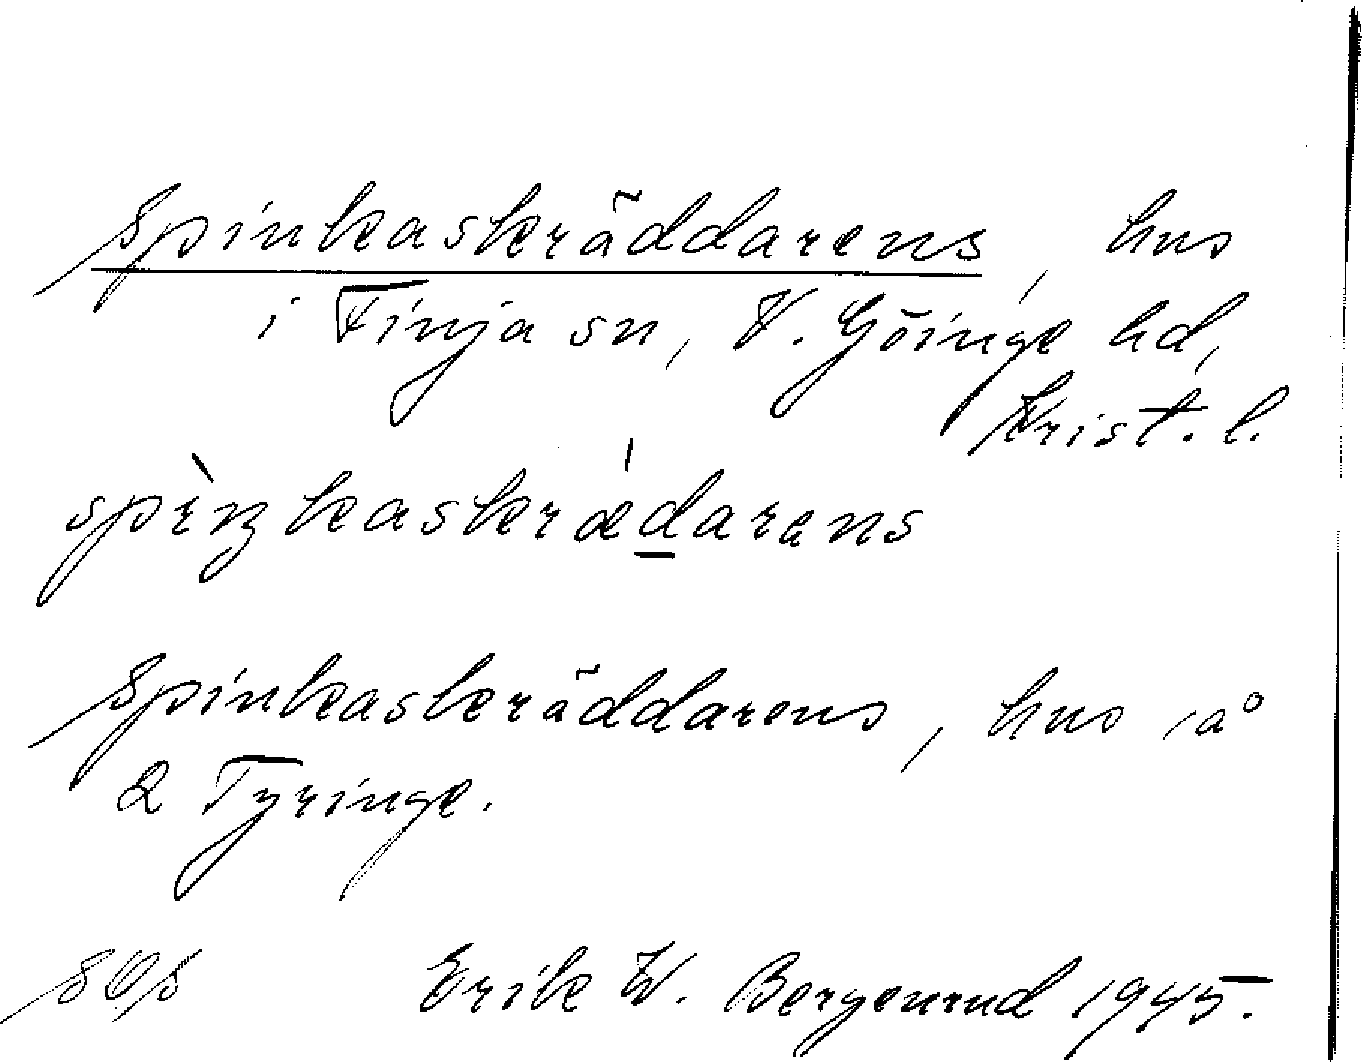 Spinkaskräddarens, hus
i Finja sn, V. Göinge hd,
Krist. l.
spìŋkaskrædarens
Spinkaskräddarens, hus i aº
2 Tyringe.
Erik W. Bergenrud 1945.